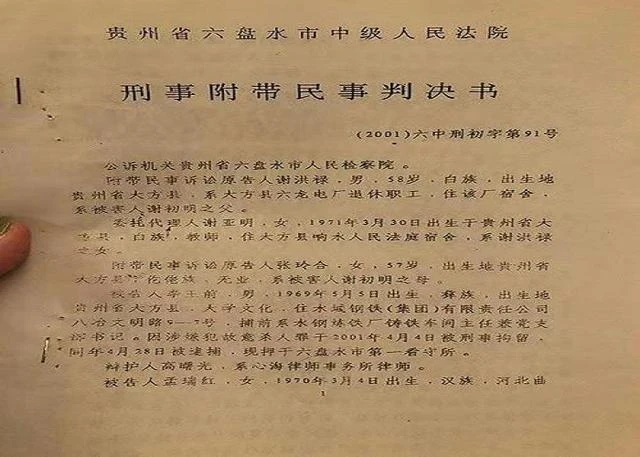 贵州省六盘水市中级人民法院
刑事附带民事判决书
(2001)六中刑初字第91号
公诉机关贵州省六盘水市人民检察院。
附带民事诉讼原告人谢洪禄，男，58岁，白族，出生地
贵州省大方县，系大方县六龙电厂退休职工，住该厂宿舍，
系被害人谢初明之父。
委托代理人谢亚明，女，1971年3月30日出生于贵州省大
方县，白族，教师，住大方县响水人民法庭宿舍，系谢洪禄
之女。
附带民事诉讼原告人张玲合，女，57岁，出生地贵州省
大方县，仡佬族，无业，系被害人谢初明之母。
被告人李王前，男，1969年5月5日出生，彝族，出生地
贵州省大方县，大学文化，住水城钢铁(集团)有限责任公司
八冶文明路9—7号，捕前系水钢炼铁厂铸铁车间主任兼党支
部书记。因涉嫌犯故意杀人罪于2001年4月4日被刑事拘留，
同年4月28日被逮捕，现押于六盘水市第一看守所。
辩护人高曙光，系心海律师事务所律师。
被告人孟瑞红，女，1970年3月4日出生，汉族，河北曲
1